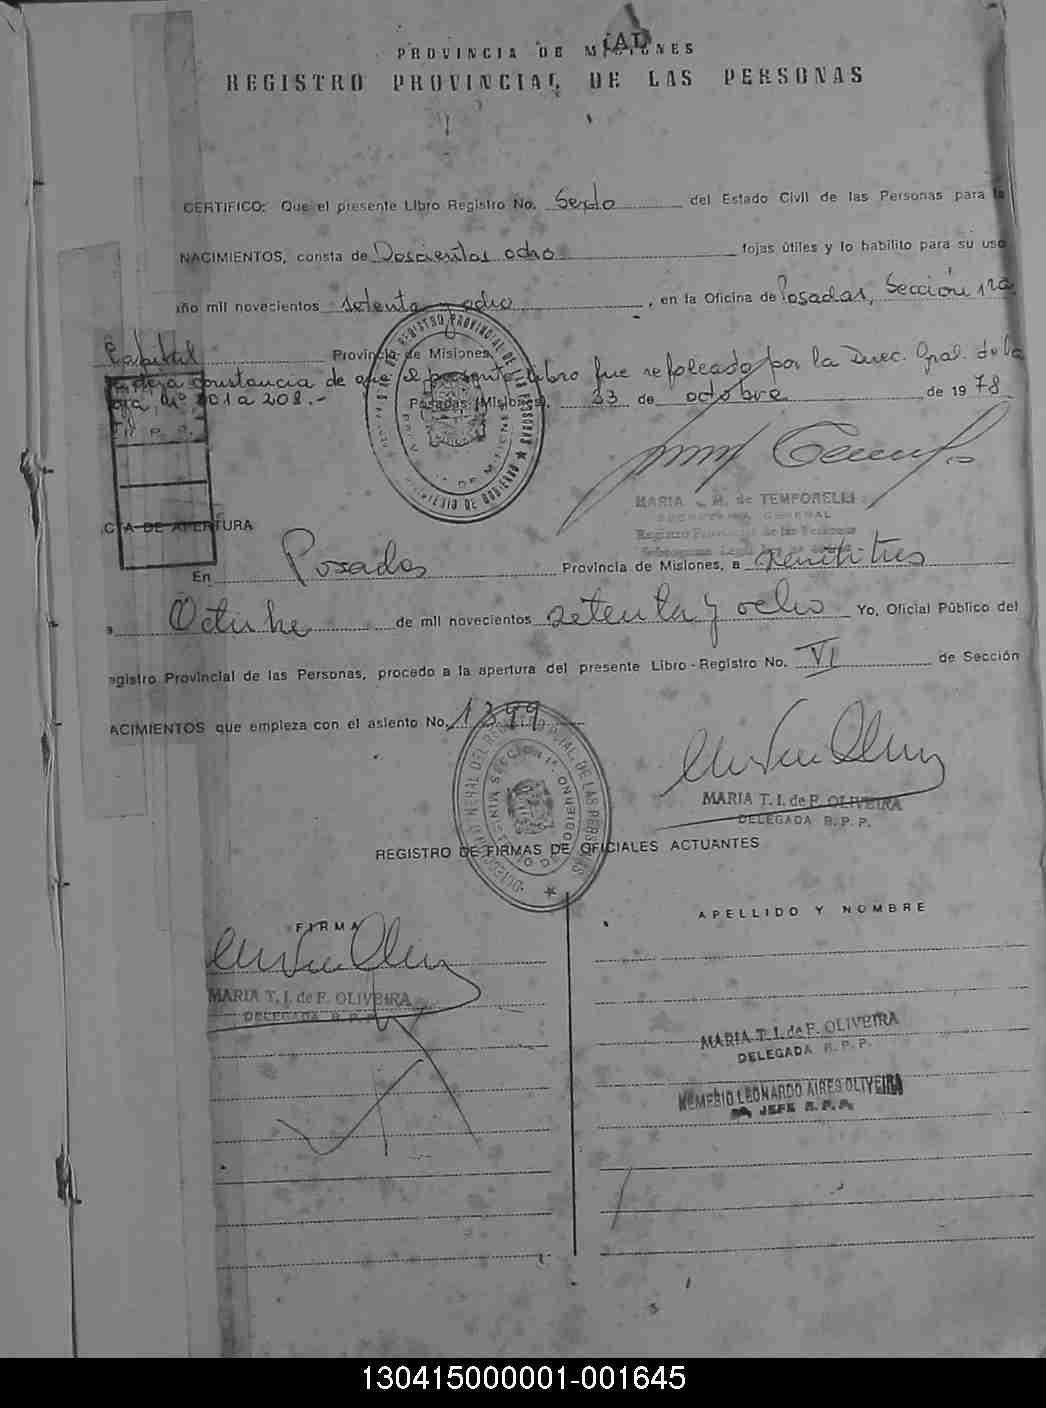 PROVINCIA DE MISIONES
REGISTRO PROVINCIAL DE LAS PERSONAS
CERTIFICO: Que el presente Libro Registro No. Sexto del Estado Civil de las Personas para la
NACIMIENTOS, consta de Doscientos ocho fojas útiles y lo habilito para su uso
año mil novecientos setenta y ocho, en la Oficina de Posadas, Sección 1ra
Capital Provincia de Misiones.
deja constancia de que el presente Libro fue refoleado por la Direc. Gral. de la
201 a 208.-
Posadas (Misiones), 23 de octubre de 1978
MARIA M. de TEMPORELLI
SECRETARIA GENERAL
Registro Provincial de las Personas
CTA DE APERTURA
En Posadas Provincia de Misiones, a veintitres
Octubre de mil novecientos setenta y ocho Yo, Oficial Público del
egistro Provincial de las Personas, procedo a la apertura del presente Libro-Registro No. VI de Sección
ACIMIENTOS que empieza con el asiento No. 1399
MARIA T. I. de F. OLIVEIRA
DELEGADA R. P. P.
REGISTRO DE FIRMAS DE OFICIALES ACTUANTES
FIRMA
APELLIDO Y NOMBRE
MARIA T. I. de F. OLIVEIRA
DELEGADA R. P. P.
MARIA T. I. de F. OLIVEIRA
DELEGADA R. P. P.
NEMESIO LEONARDO AIRES OLIVEIRA
JEFE R. P. P.
130415000001-001645